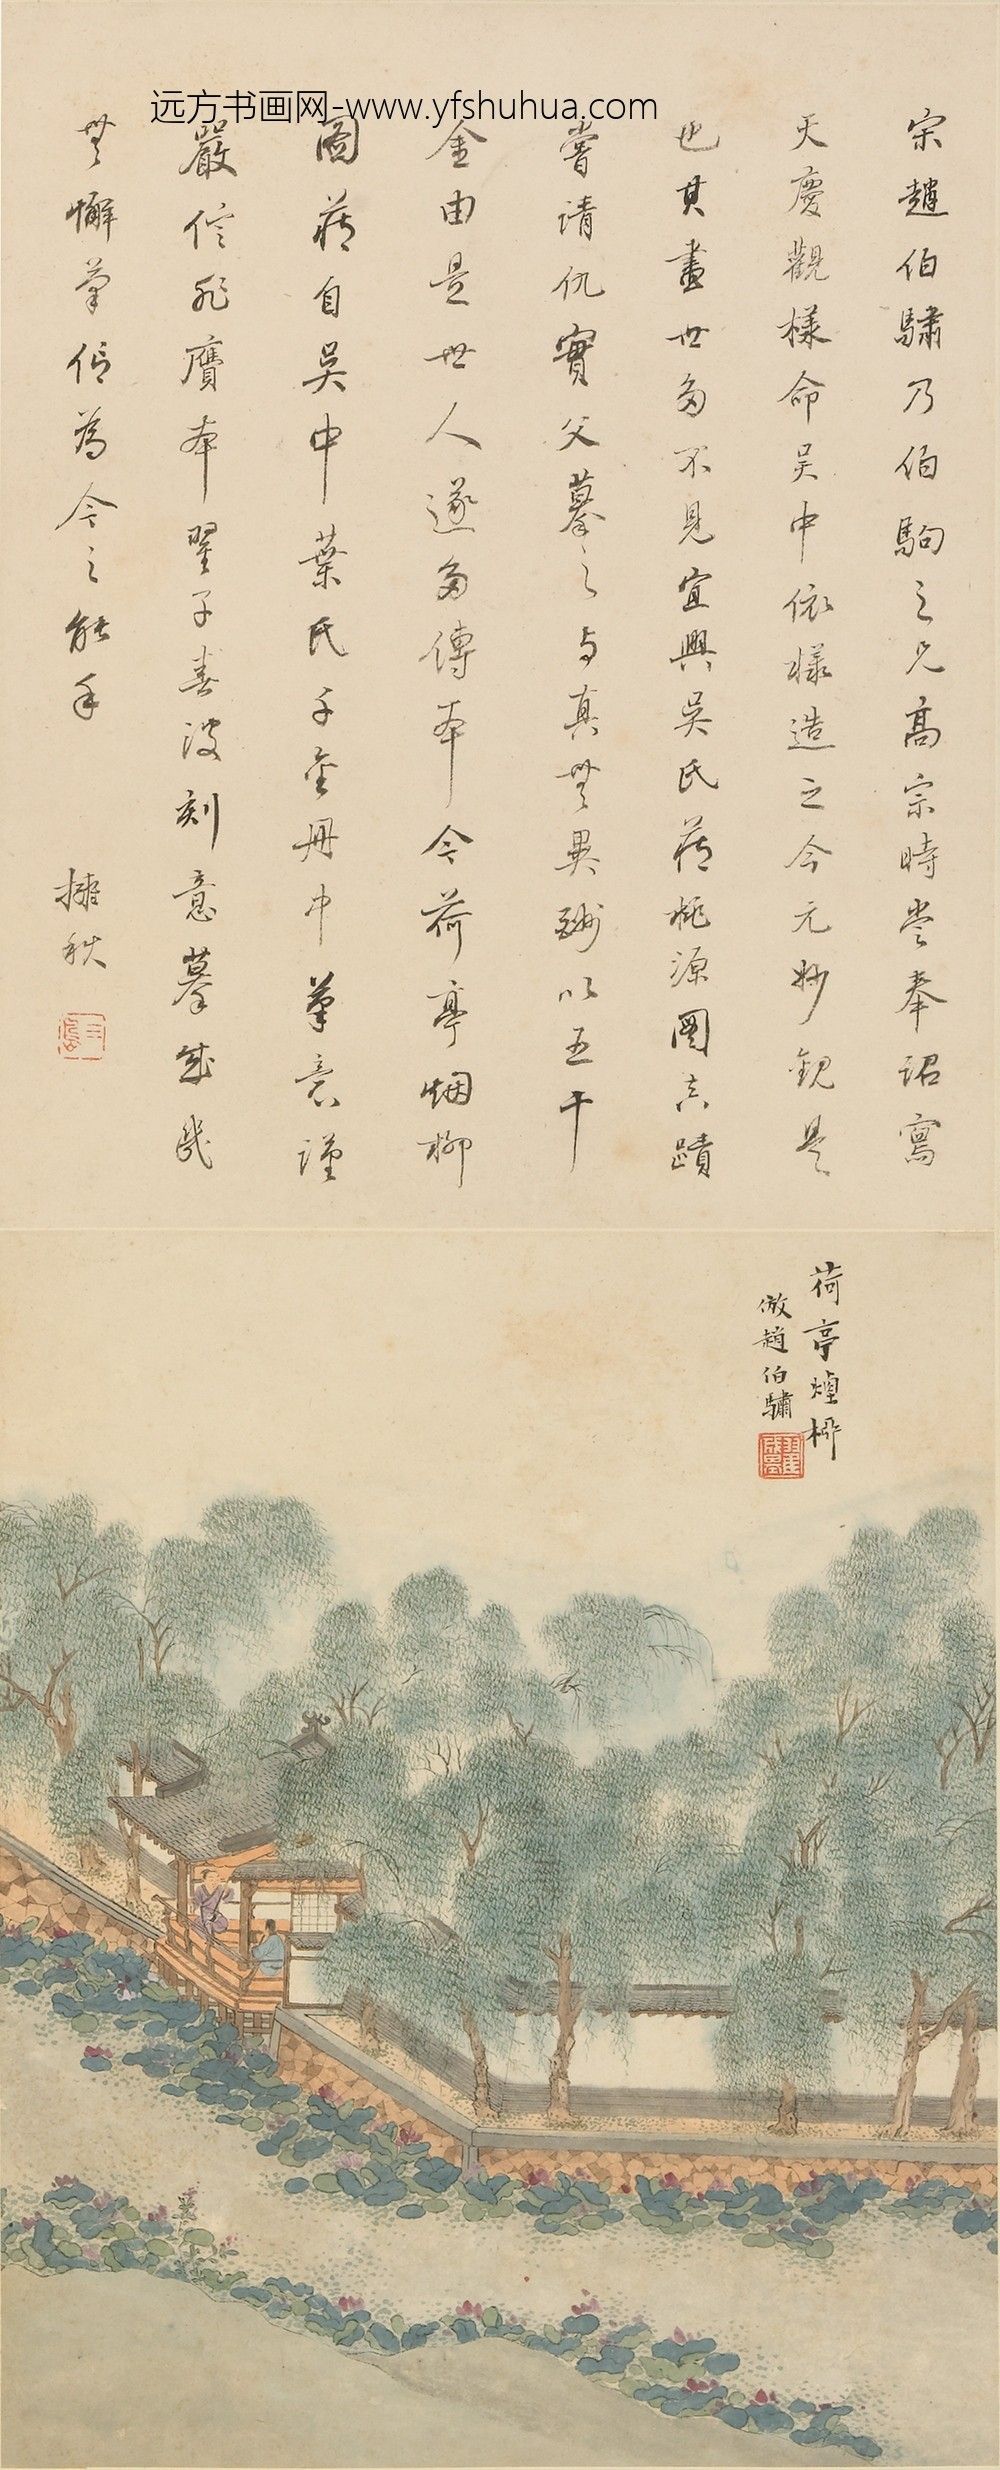 远方书画网-www.yfshuhua.com
宋趙伯驌乃伯駒之兄高宗時嘗奉詔寫
天慶觀樣命吴中依樣造之今元妙觀是
也其畫世多不見宜興吴氏藏桃源圖真蹟
嘗請仇實父摹之与真無異酬以五十
金由是世人遂多傳本今荷亭烟柳
圖藏自吴中葉氏千金册中筆意謹
嚴信非贋本翟子春波刻意摹成我
無懈筆信為今之能手
擁秋
荷亭煙柳
倣趙伯驌